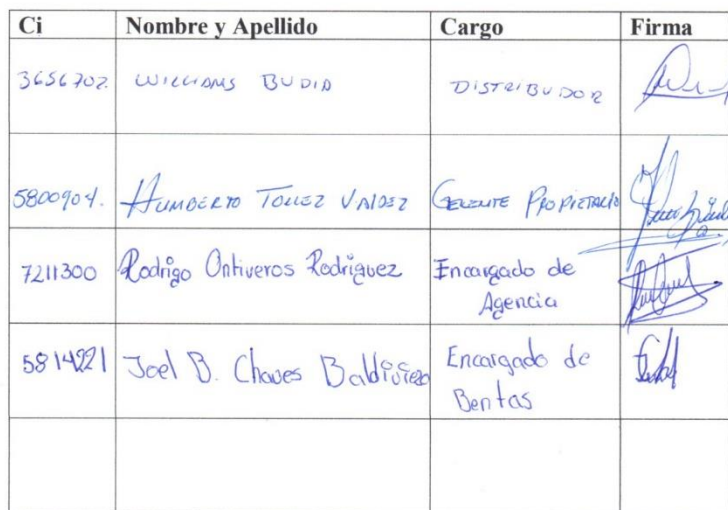 Ci Nombre y Apellido Cargo Firma
3656702. WILLIAMS BUDIA DISTRIBUDOR
5800904. HUMBERTO TOLLEZ VALDEZ GERENTE PROPIETARIO
7211300 Rodrigo Ontiveros Rodriguez Encargado de
Agencia
5814221 Joel B. Chaves Baldiviezo Encargado de
Bentas